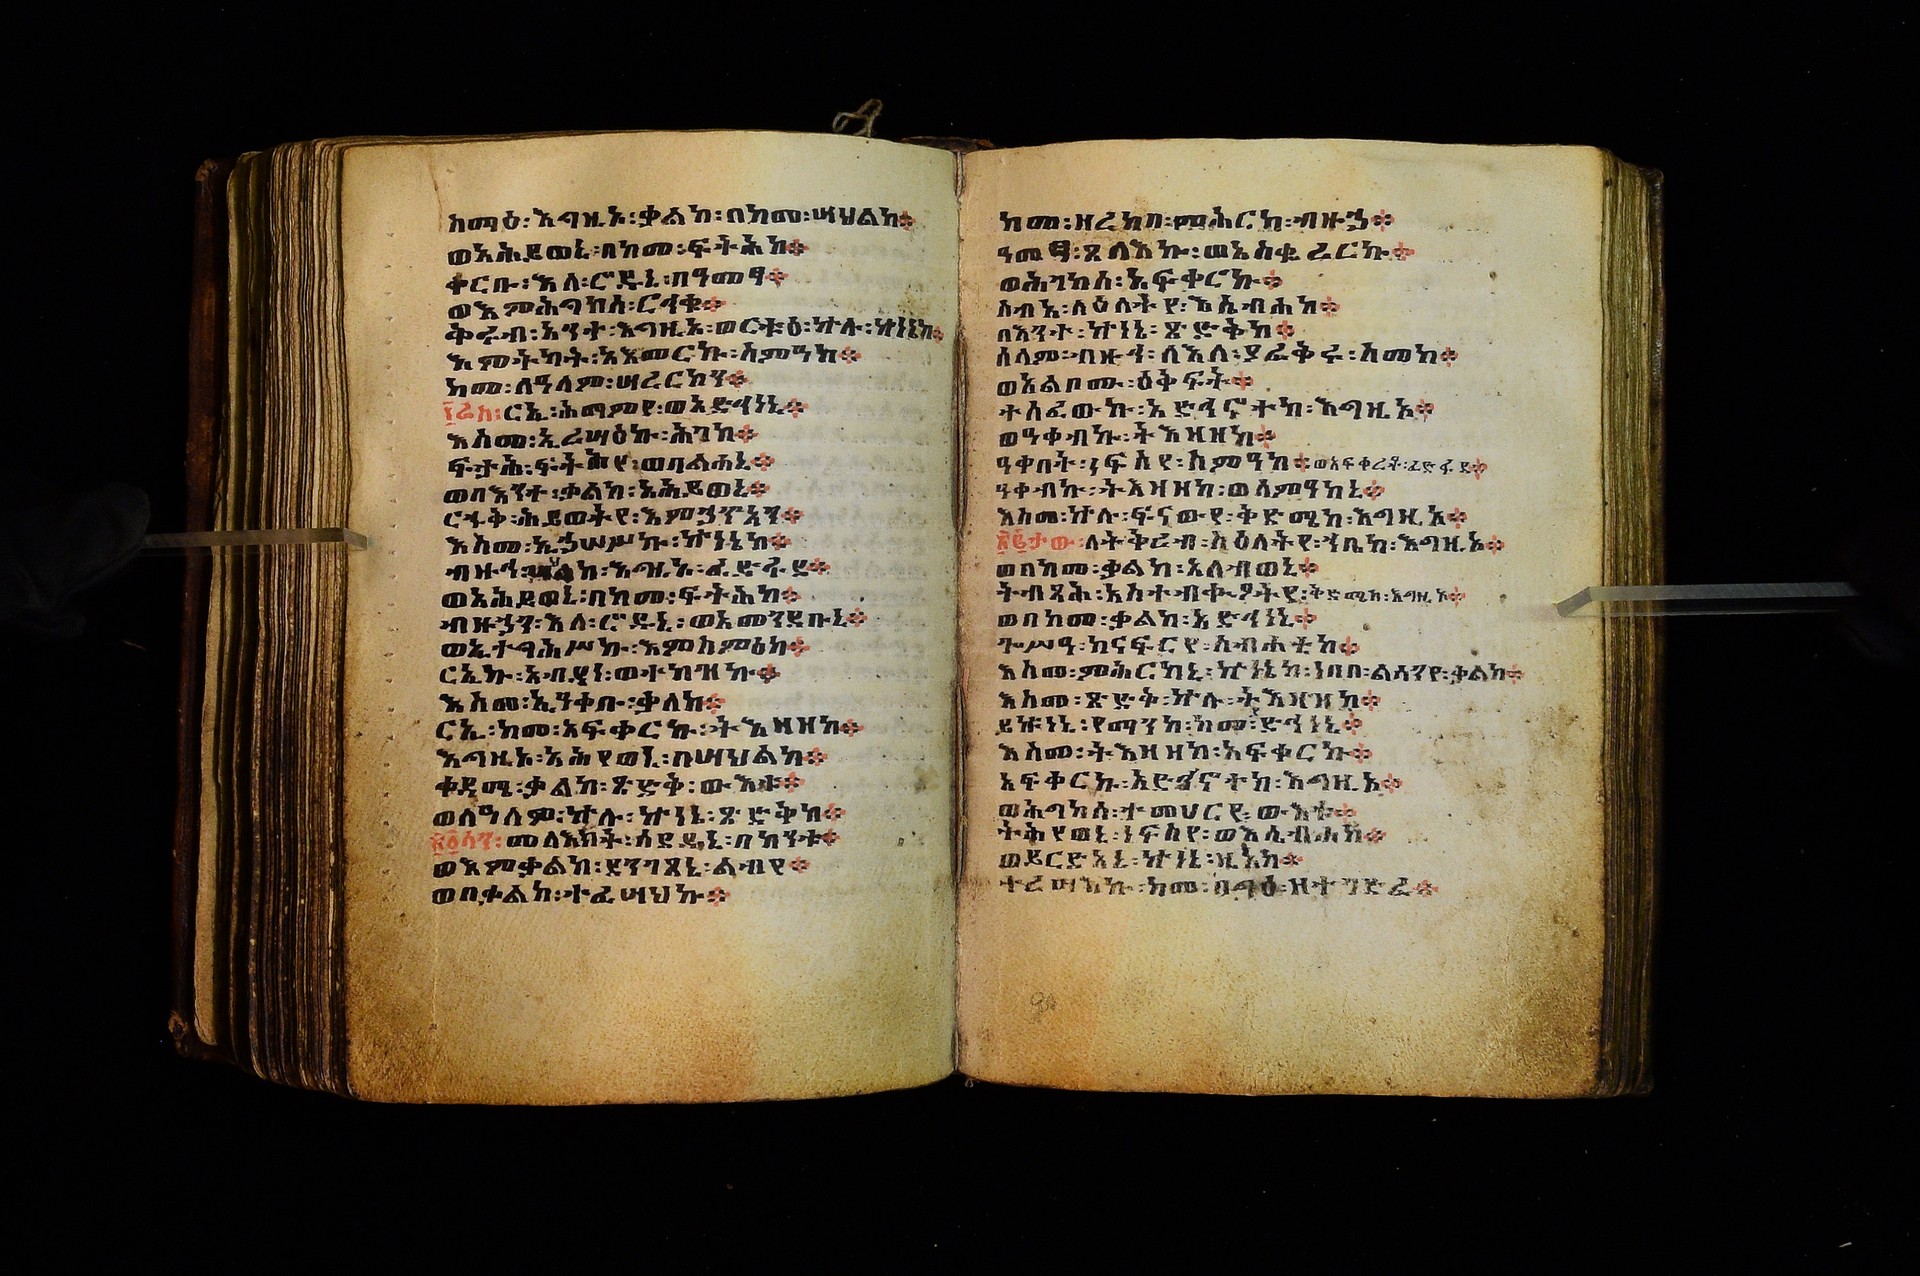 ስማዕ፡እግዚኦ፡ቃልከ፡በከመ፡ሣህልከ፨
ወአሕይወኒ፡በከመ፡ፍትሕከ፨
ቀርቡ፡እለ፡ሮዱኒ፡በዓመፃ፨
ወእምሕግከሰ፡ርኅቁ፨
ቅሩብ፡አንተ፡እግዚኦ፡ወርቱዕ፡ኵሉ፡ኵነኔከ፨
እምትካት፡አእመርኩ፡ስምዓከ፨
ከመ፡ለዓለም፡ሣረርከን፨
፳ሬስ፡ርኢ፡ሕማምየ፡ወአድኅነኒ፨
እስመ፡ኢረሣዕኩ፡ሕገከ፨
ፍታሕ፡ፍትሕየ፡ወበልሐኒ፨
ወበእንተ፡ቃልከ፡አሕይወኒ፨
ርኁቅ፡ሕይወትየ፡እምኃጥኣን፨
እስመ፡ኢኃሠሥኩ፡ኵነኔከ፨
ብዙኅ፡ሣህልከ፡እግዚኦ፡ፈድፋደ፨
ወአሕይወኒ፡በከመ፡ፍትሕከ፨
ብዙኃን፡እለ፡ሮዱኒ፡ወአመንደቡኒ፨
ወኢተግሕሥኩ፡እምስምዕከ፨
ርኢኩ፡አብዳነ፡ወተከዝኩ፨
እስመ፡ኢዓቀቡ፡ቃለከ፨
ርኢ፡ከመ፡አፍቀርኩ፡ትእዛዘከ፨
እግዚኦ፡አሕየወኒ፡በሣህልከ፨
ቀዳሜ፡ቃልከ፡ጽድቅ፡ውእቱ፨
ወለዓለም፡ኵሉ፡ኵነኔ፡ጽድቅከ፨
፳፩ሳን፡መላእክት፡ሰደዱኒ፡በከንቱ፨
ወእምቃልከ፡ደንገጸኒ፡ልብየ፨
ወበቃልከ፡ተፈሣህኩ፨
ከመ፡ዘረከበ፡ምሕርካ፡ብዙኃ፨
ዓመፃ፡ጸላእኩ፡ወአስቆረርኩ፨
ወሕገከሰ፡አፍቀርኩ፨
ስብዐ፡ለዕለትየ፡እሴብሐከ፨
በእንተ፡ኵነኔ፡ጽድቅከ፨
ሰላም፡ብዙኅ፡ለእለ፡ያፈቅሩ፡ስመከ፨
ወአልቦሙ፡ዕቅፍት፨
ተሰፈውኩ፡አድኅኖተከ፡እግዚኦ፨
ወዓቀብኩ፡ትእዛዘከ፨
ዓቀበት፡ነፍስየ፡ስምዓከ፨ወአፍቀረቶ፡ፈድፋደ፨
ዓቀብኩ፡ትእዛዘከ፡ወስምዓከኒ፨
እስመ፡ኵሉ፡ፍናውየ፡ቅድሜከ፡እግዚኦ፨
፳፪ታው፡ለትቅረብ፡ስዕለትየ፡ኀቤከ፡እግዚኦ፨
ወበከመ፡ቃልከ፡አለብወኒ፨
ትብጻሕ፡አስተብቍዖትየ፡ቅድሜከ፡እግዚኦ፨
ወበከመ፡ቃልከ፡አድኅነኒ፨
ጐሥዓ፡ከናፍርየ፡ስብሐቲከ፨
እስመ፡ምሕርከኒ፡ኵነኔከ፡ነበበ፡ልሳንየ፡ቃልከ፨
እስመ፡ጽድቅ፡ኵሉ፡ትእዛዝከ፨
ይኩነኒ፡የማንከ፡ከመ፡ድኅነኒ፨
እስመ፡ትእዛዘከ፡አፍቀርኩ፨
አፍቀርኩ፡አድኅኖተከ፡እግዚኦ፨
ወሕግከሰ፡ተመህርየ፡ውእቱ፨
ትሕየወኒ፡ነፍስየ፡ወእሴብሐከ፨
ወይርድአኒ፡ኵነኔ፡ዚአከ፨
ተረሣእኩ፡ከመ፡በግዕ፡ዘተገድፈ፨